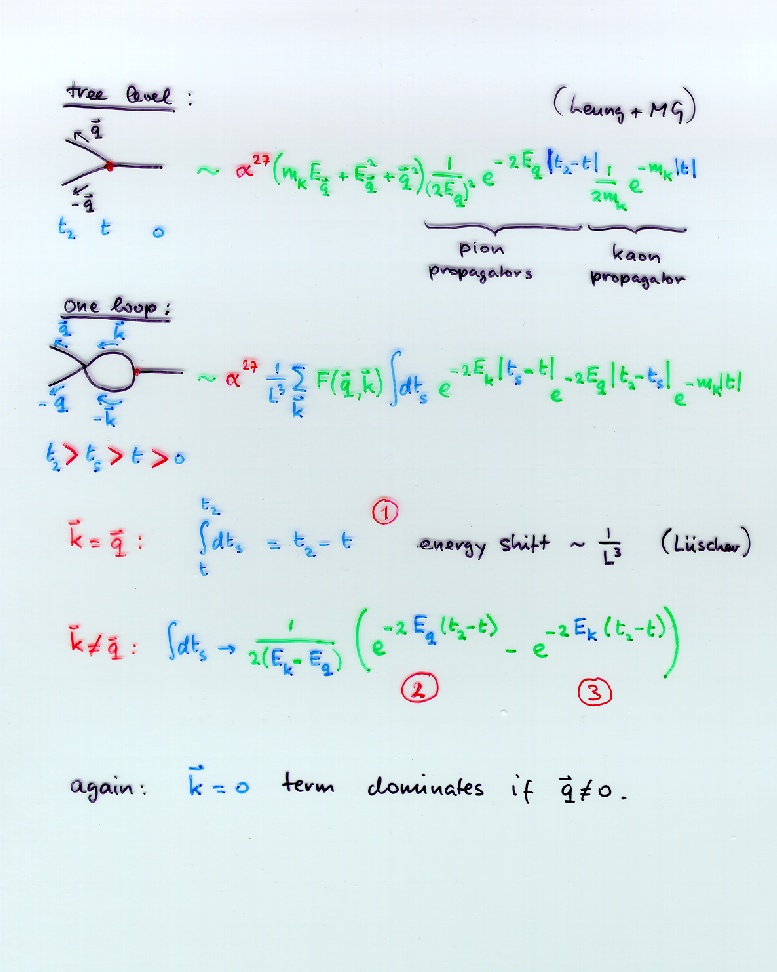 tree level :
(Leung + MG)
q⃗
-q⃗
t₂ t 0
~ α²⁷ (m_K E_q⃗ + E_q⃗² + q⃗²) 1/(2E_q⃗)² e^{-2E_q⃗|t₂-t|} 1/2m_K e^{-m_K|t|}
pion propagators
kaon propagator
one loop :
q⃗ k⃗
-q⃗ -k⃗
~ α²⁷ 1/L³ Σ_k⃗ F(q⃗,k⃗) ∫dt_s e^{-2E_k⃗|t_s-t|} e^{-2E_q⃗|t₂-t_s|} e^{-m_K|t|}
t₂ > t_s > t > 0
k⃗ = q⃗ : ∫_t^{t₂} dt_s = t₂ - t ① energy shift ~ 1/L³ (Lüscher)
k⃗ ≠ q⃗ : ∫dt_s → 1/2(E_k - E_q) (e^{-2E_q(t₂-t)} - e^{-2E_k(t₂-t)})
② ③
again : k⃗ = 0 term dominates if q⃗ ≠ 0 .